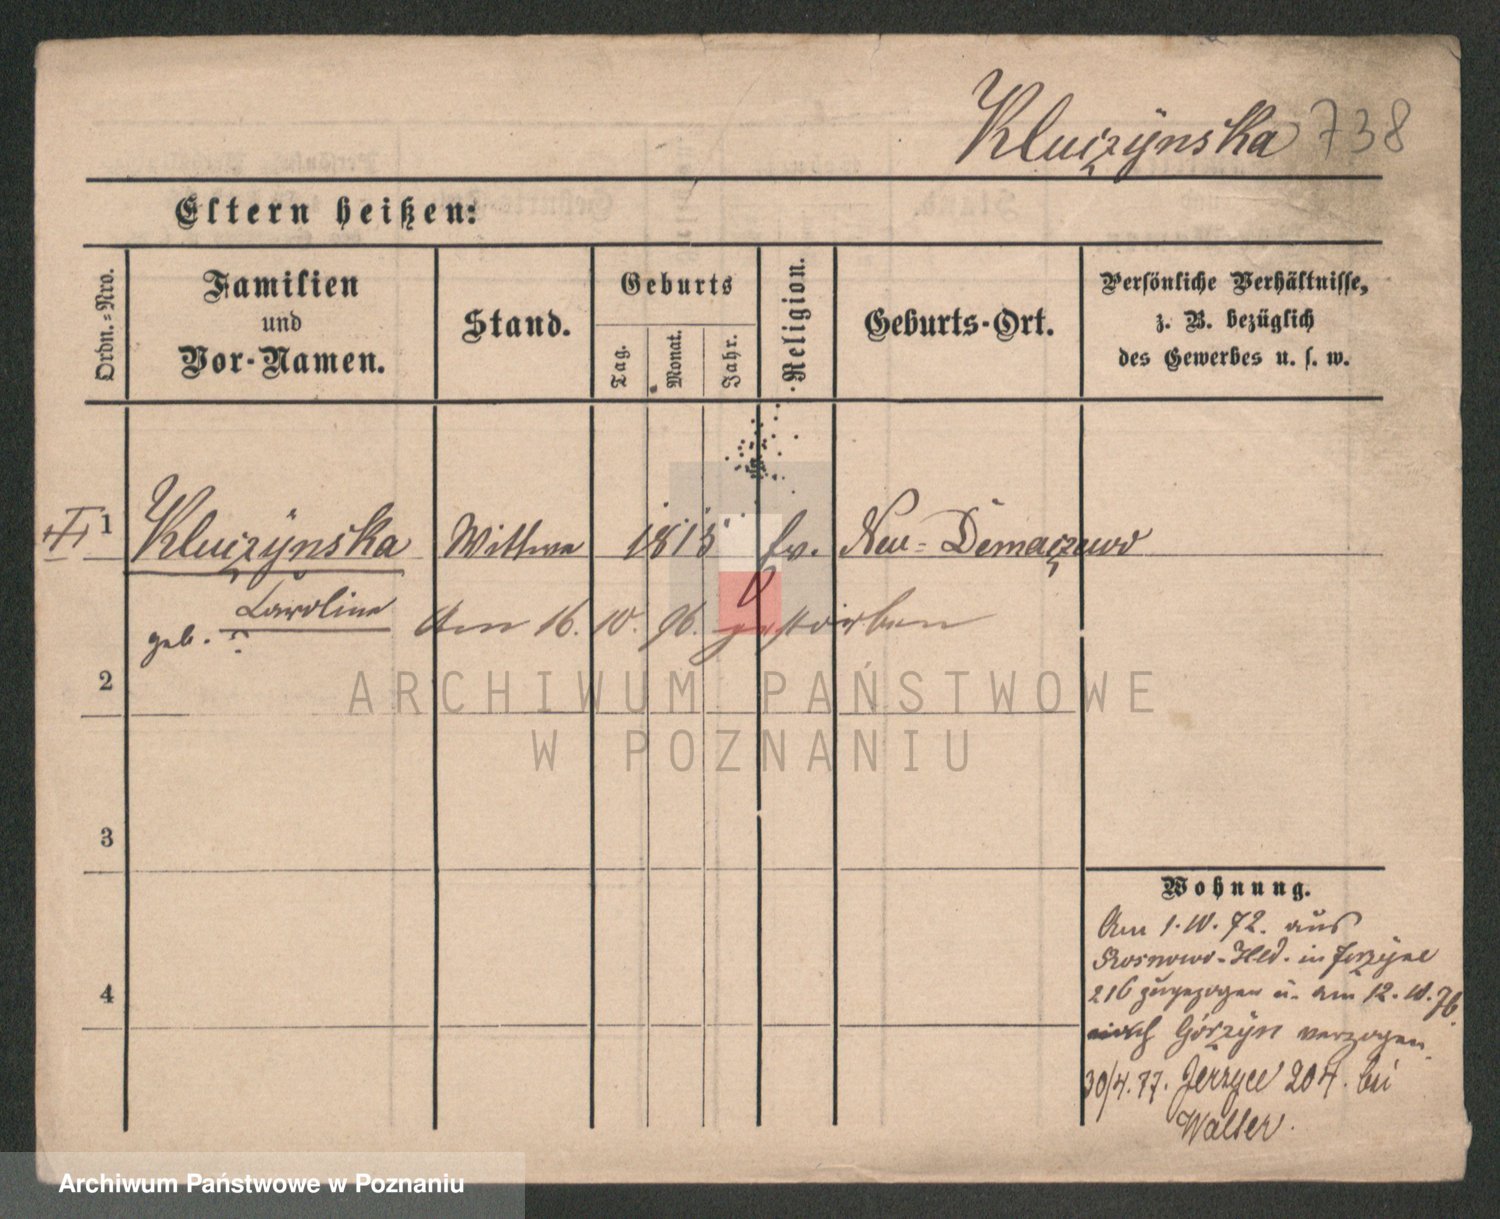 Kluczynska 738
Eltern heißen:
Ordn.=Nro.
Familien
und
Vor-Namen.
Stand.
Geburts
Tag.
Monat.
Jahr.
Religion.
Geburts-Ort.
Persönliche Verhältnisse,
z. B. bezüglich
des Gewerbes u. s. w.
1 Kluczynska Wittwe 1815 Neu-Demaczewo
Caroline
geb. ?
Am 16. 10. 96. gestorben
2
3
4
Wohnung.
Am 1. 10. 72. aus
Rosnowo-Hld. in
216 zugezogen u. am 12. 10. 76.
nach Górzyn verzogen.
30/4. 77. Jerzyce 204. bei
Walter.
ARCHIWUM PAŃSTWOWE
W POZNANIU
Archiwum Państwowe w Poznaniu